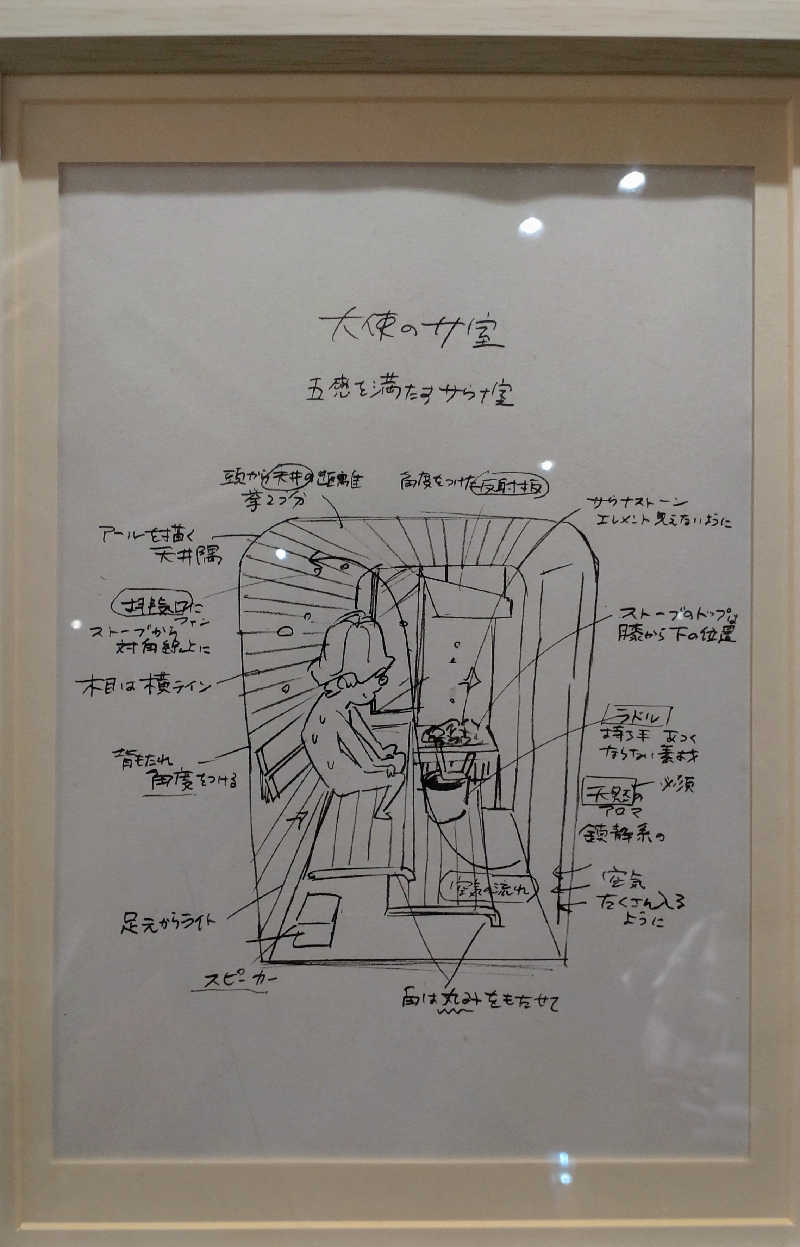 天使のサ室
五感を満たすサウナ室
頭から天井の距離
拳2つ分
角度をつけた反射板
サウナストーン
エレメント見えないように
アールを描く
天井隅
排気口に
ファン
ストーブから
対角線上に
ストーブのトップは
膝から下の位置
木目は横ライン
ラドル
持ち手 あつく
ならない素材
背もたれ
角度をつける
必須
天然の
アロマ
鎮静系の
空気の流れ
空気
たくさん入る
ように
足元からライト
スピーカー
角は丸みをもたせて